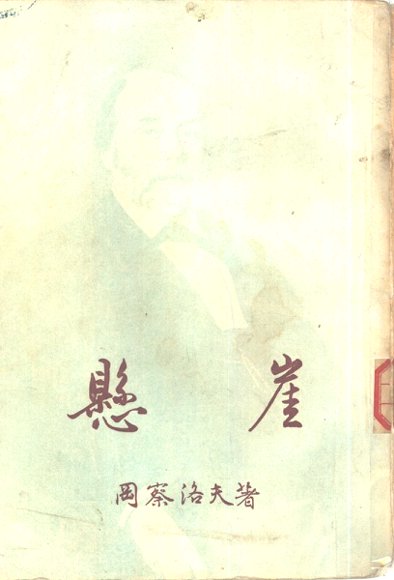 懸崖
岡察洛夫著